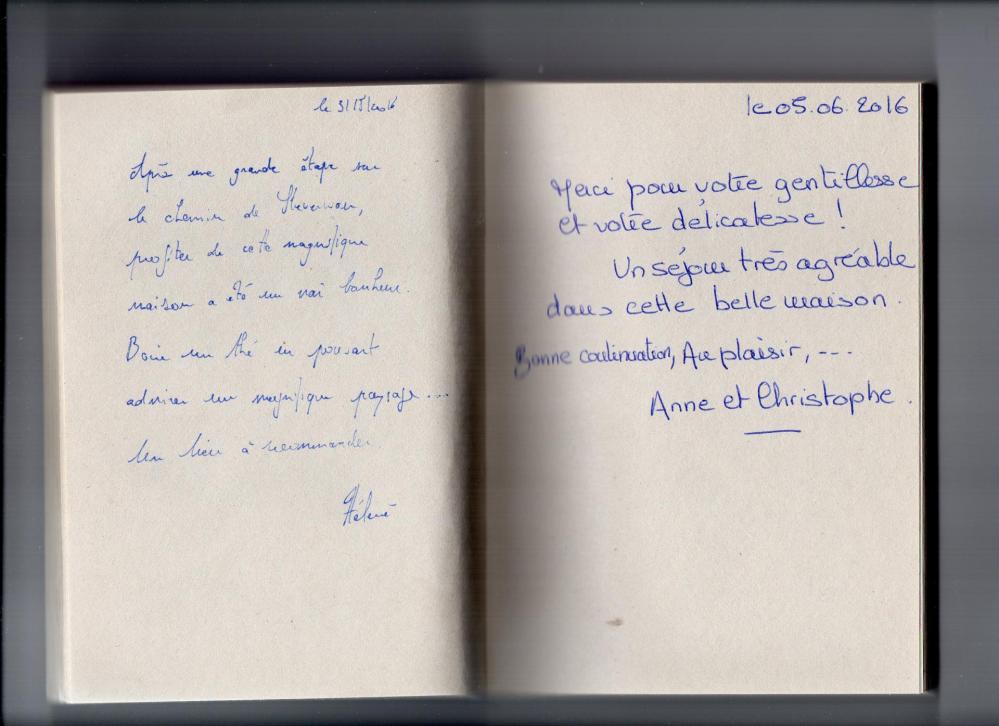 le 31/5/2016
Après une grande étape sur
le chemin de Stevenson,
profiter de cette magnifique
maison a été un vrai bonheur.
Boire un thé en pouvant
admirer un magnifique paysage...
Un lieu à recommander.
Hélène
le 05.06.2016
Merci pour votre gentillesse
et votre délicatesse !
Un séjour très agréable
dans cette belle maison.
Bonne continuation, Au plaisir, ---
Anne et Christophe.